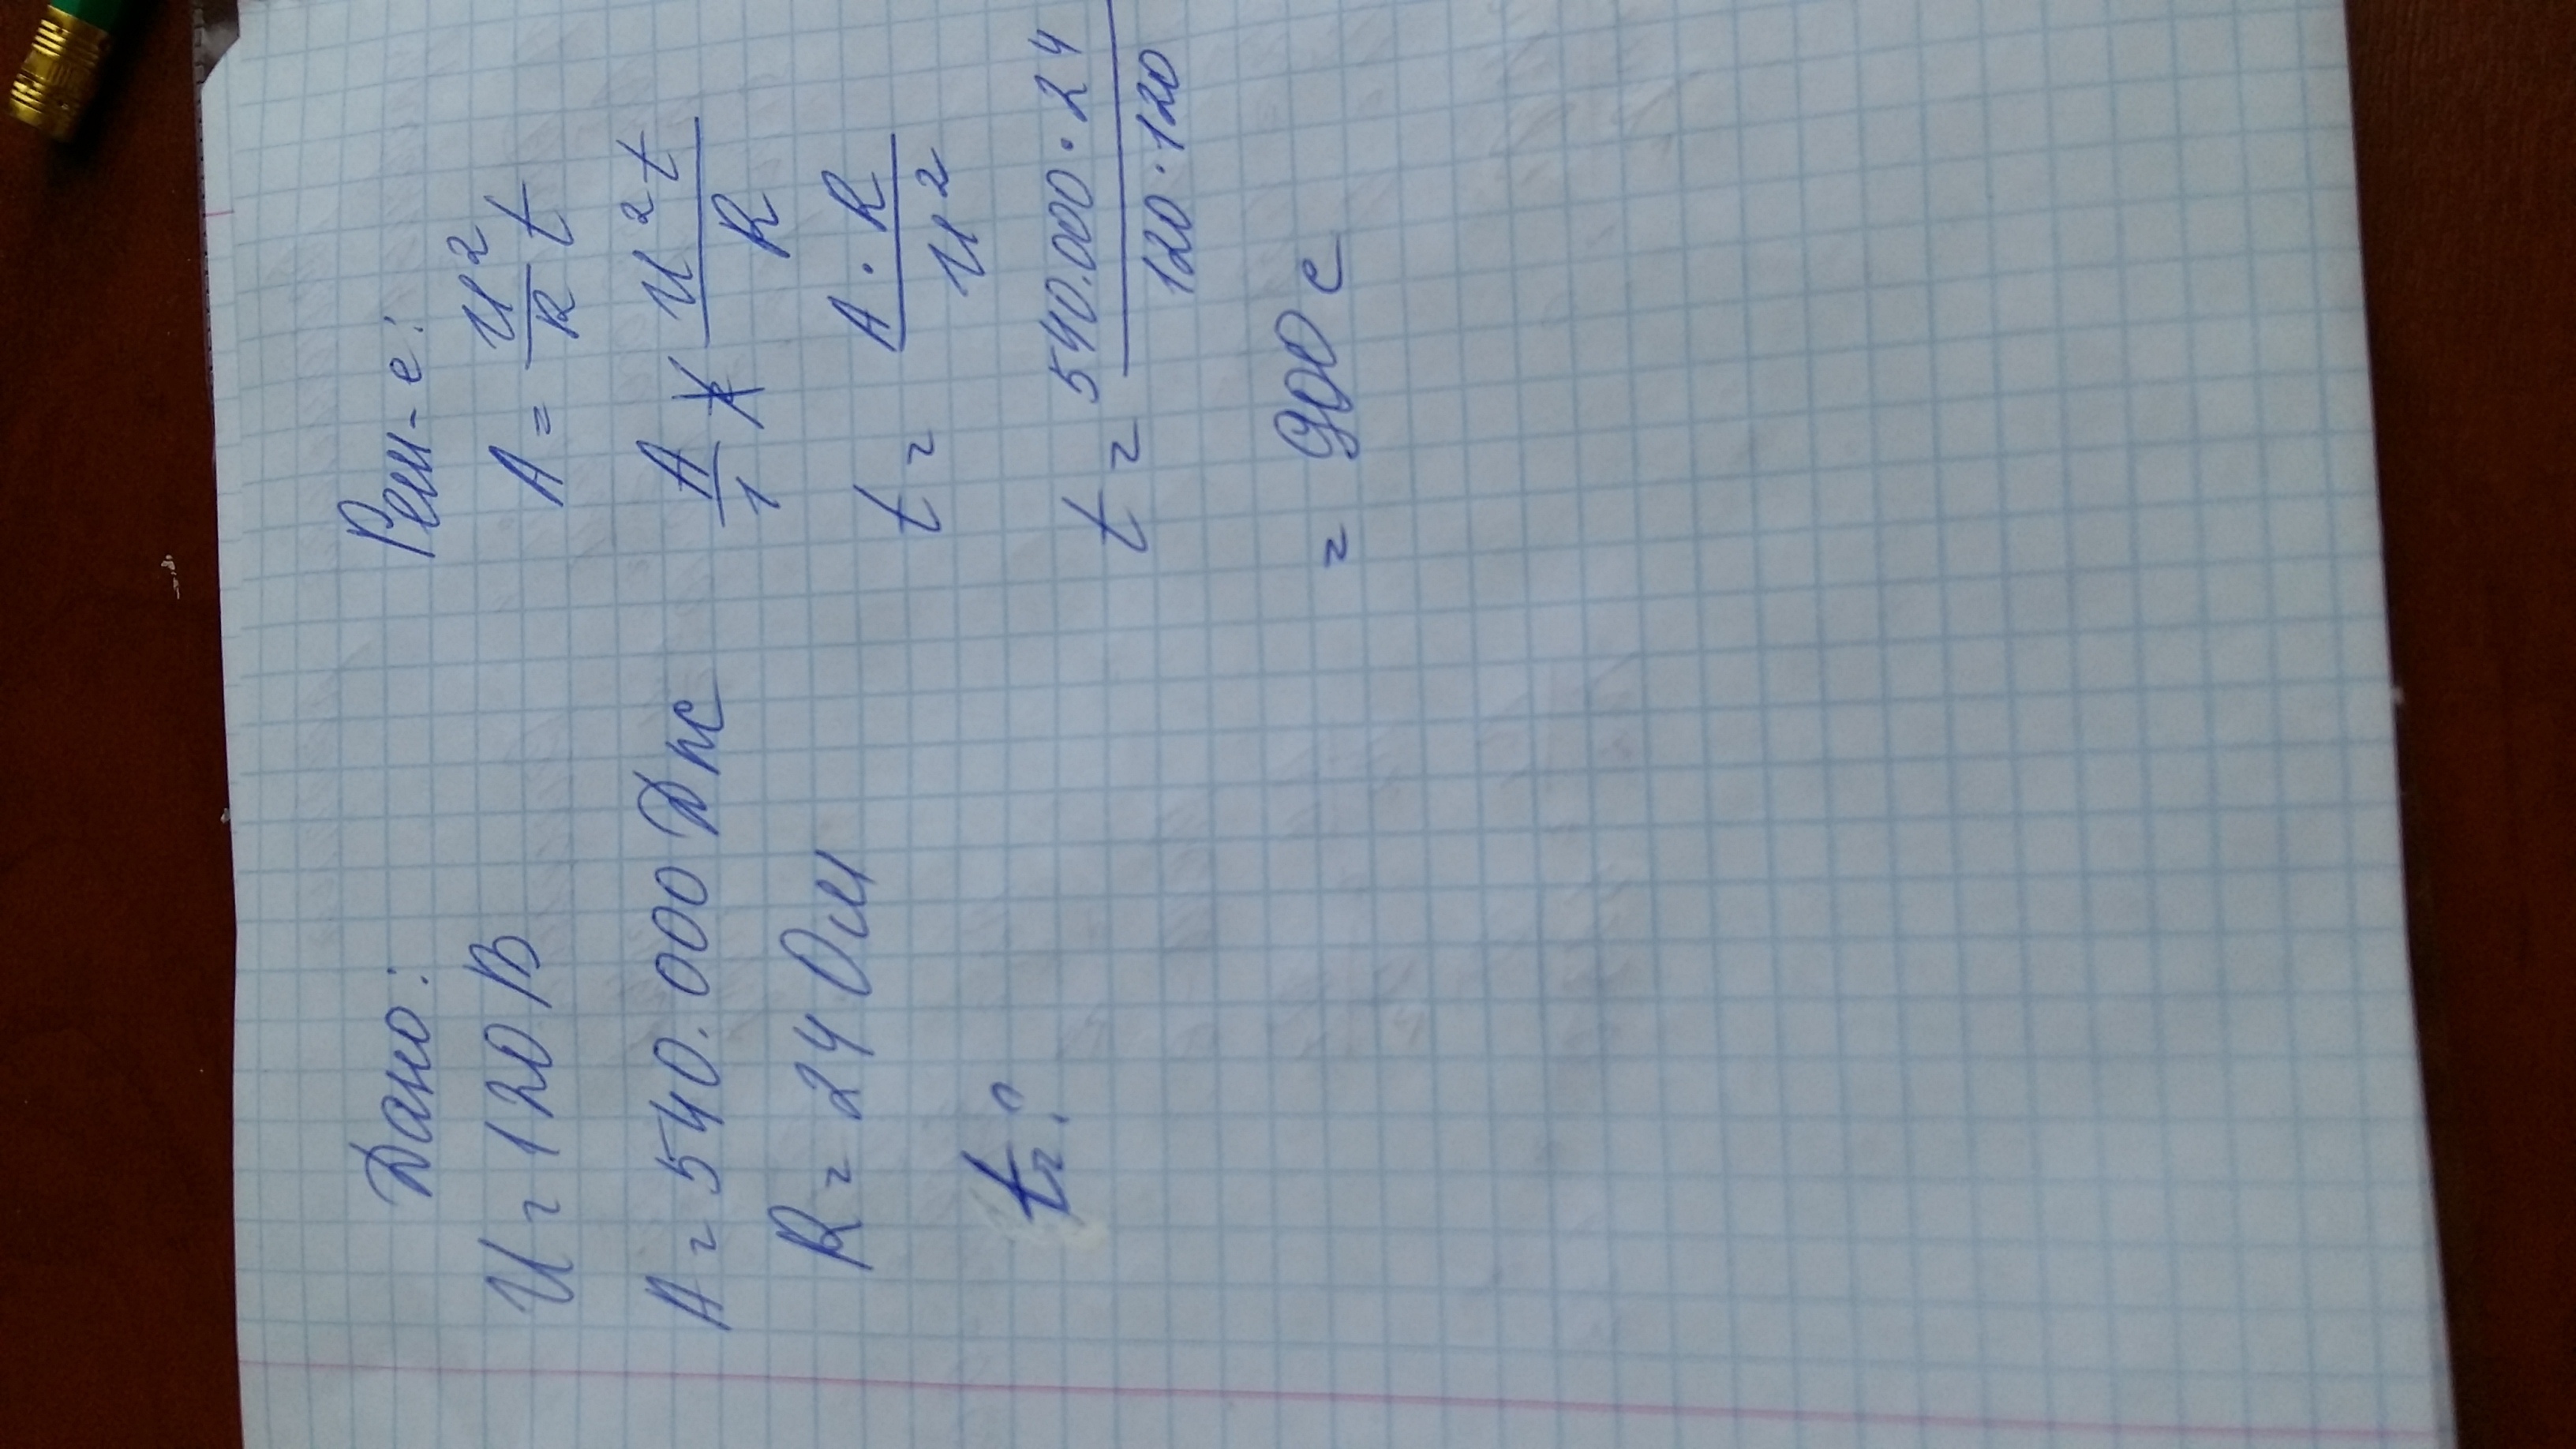 Дано:
U = 120 В
A = 540.000 Дж
R = 24 Ом
t = ?
Реш-е:
A = U²/R t
A/1 = U² t/R
t = A · R/U²
t = 540.000 · 24/120 · 120
= 900 с